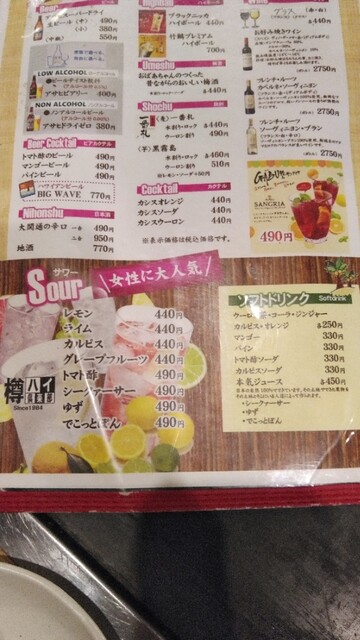 アサヒスーパードライ
490円
(小) 380円
550円
LOW ALCOHOL
アサヒビアリー 400円
NON ALCOHOL ノンアルコール
(アルコール0.00%)
アサヒドライゼロ 380円
Beer Cocktail ビアカクテル
トマト酢のビール 490円
マンゴービール 490円
パインビール 490円
ハワイアンビール
BIG WAVE 770円
Nihonshu 日本酒
大関通の辛口 一合 490円
二合 950円
地酒 770円
Highball ハイボール
ブラックニッカ
ハイボール 440円
竹鶴プレミアム
ハイボール
700円
Umeshu 梅酒
おばあちゃんのつくった
昔ながらのおいしい梅酒
水割り・ロック 440円
ソーダ割り 440円
Shochu 焼酎
(麦) 一番札
水割り・ロック 440円
ウーロン割り 490円
(芋) 黒霧島
水割り・ロック 460円
ウーロン割り 510円
※レモン・ソーダ +50円
Cocktail カクテル
カシスオレンジ 440円
カシスソーダ 440円
カシスウーロン 440円
※表示価格は税込価格です。
グラス (赤・白)
各440円
お好み焼きワイン
2750円
フレンチ・ルーツ
カベルネ・ソーヴィニヨン
2750円
フレンチ・ルーツ
ソーヴィニヨン・ブラン
2750円
SANGRIA
490円
Sour サワー
女性に大人気
レモン 440円
ライム 440円
カルピス 440円
グレープフルーツ 440円
トマト酢 490円
シークァーサー 490円
ゆず 490円
でこっとぽん 490円
樽ハイ倶楽部
Since1984
ソフトドリンク
Softdrink
ウーロン茶・コーラ・ジンジャー
カルピス・オレンジ 各250円
マンゴー 330円
パイン 330円
トマト酢ソーダ 330円
カルピスソーダ 330円
本気ジュース 各450円
・シークァーサー
・ゆず
・でこっとぽん